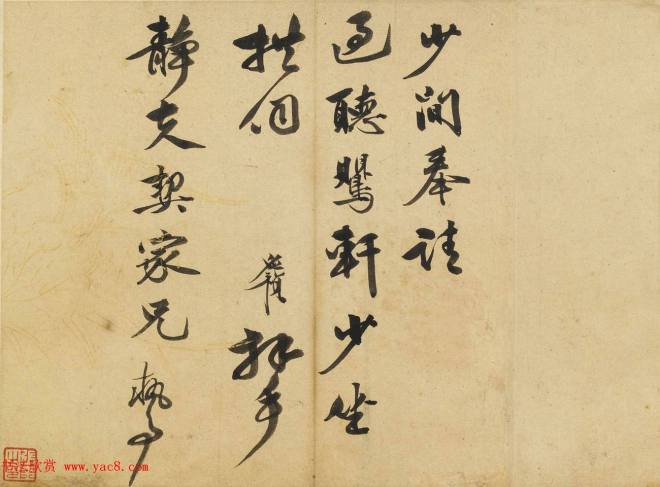 少間奉請
過聽鸎軒少坐
拱伺 拜手
靜夫契家兄 執事
书法欣赏 www.yac8.com